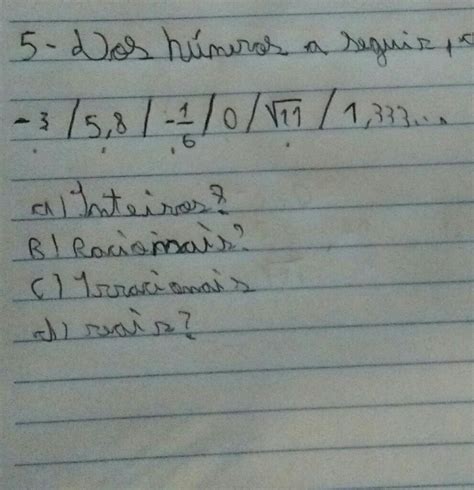 5- Dos números a seguir,
-3 / 5,8 / -1/6 / 0 / √11 / 1,333...
a) Inteiros?
B) Racionais?
C) Irracionais
d) reais?